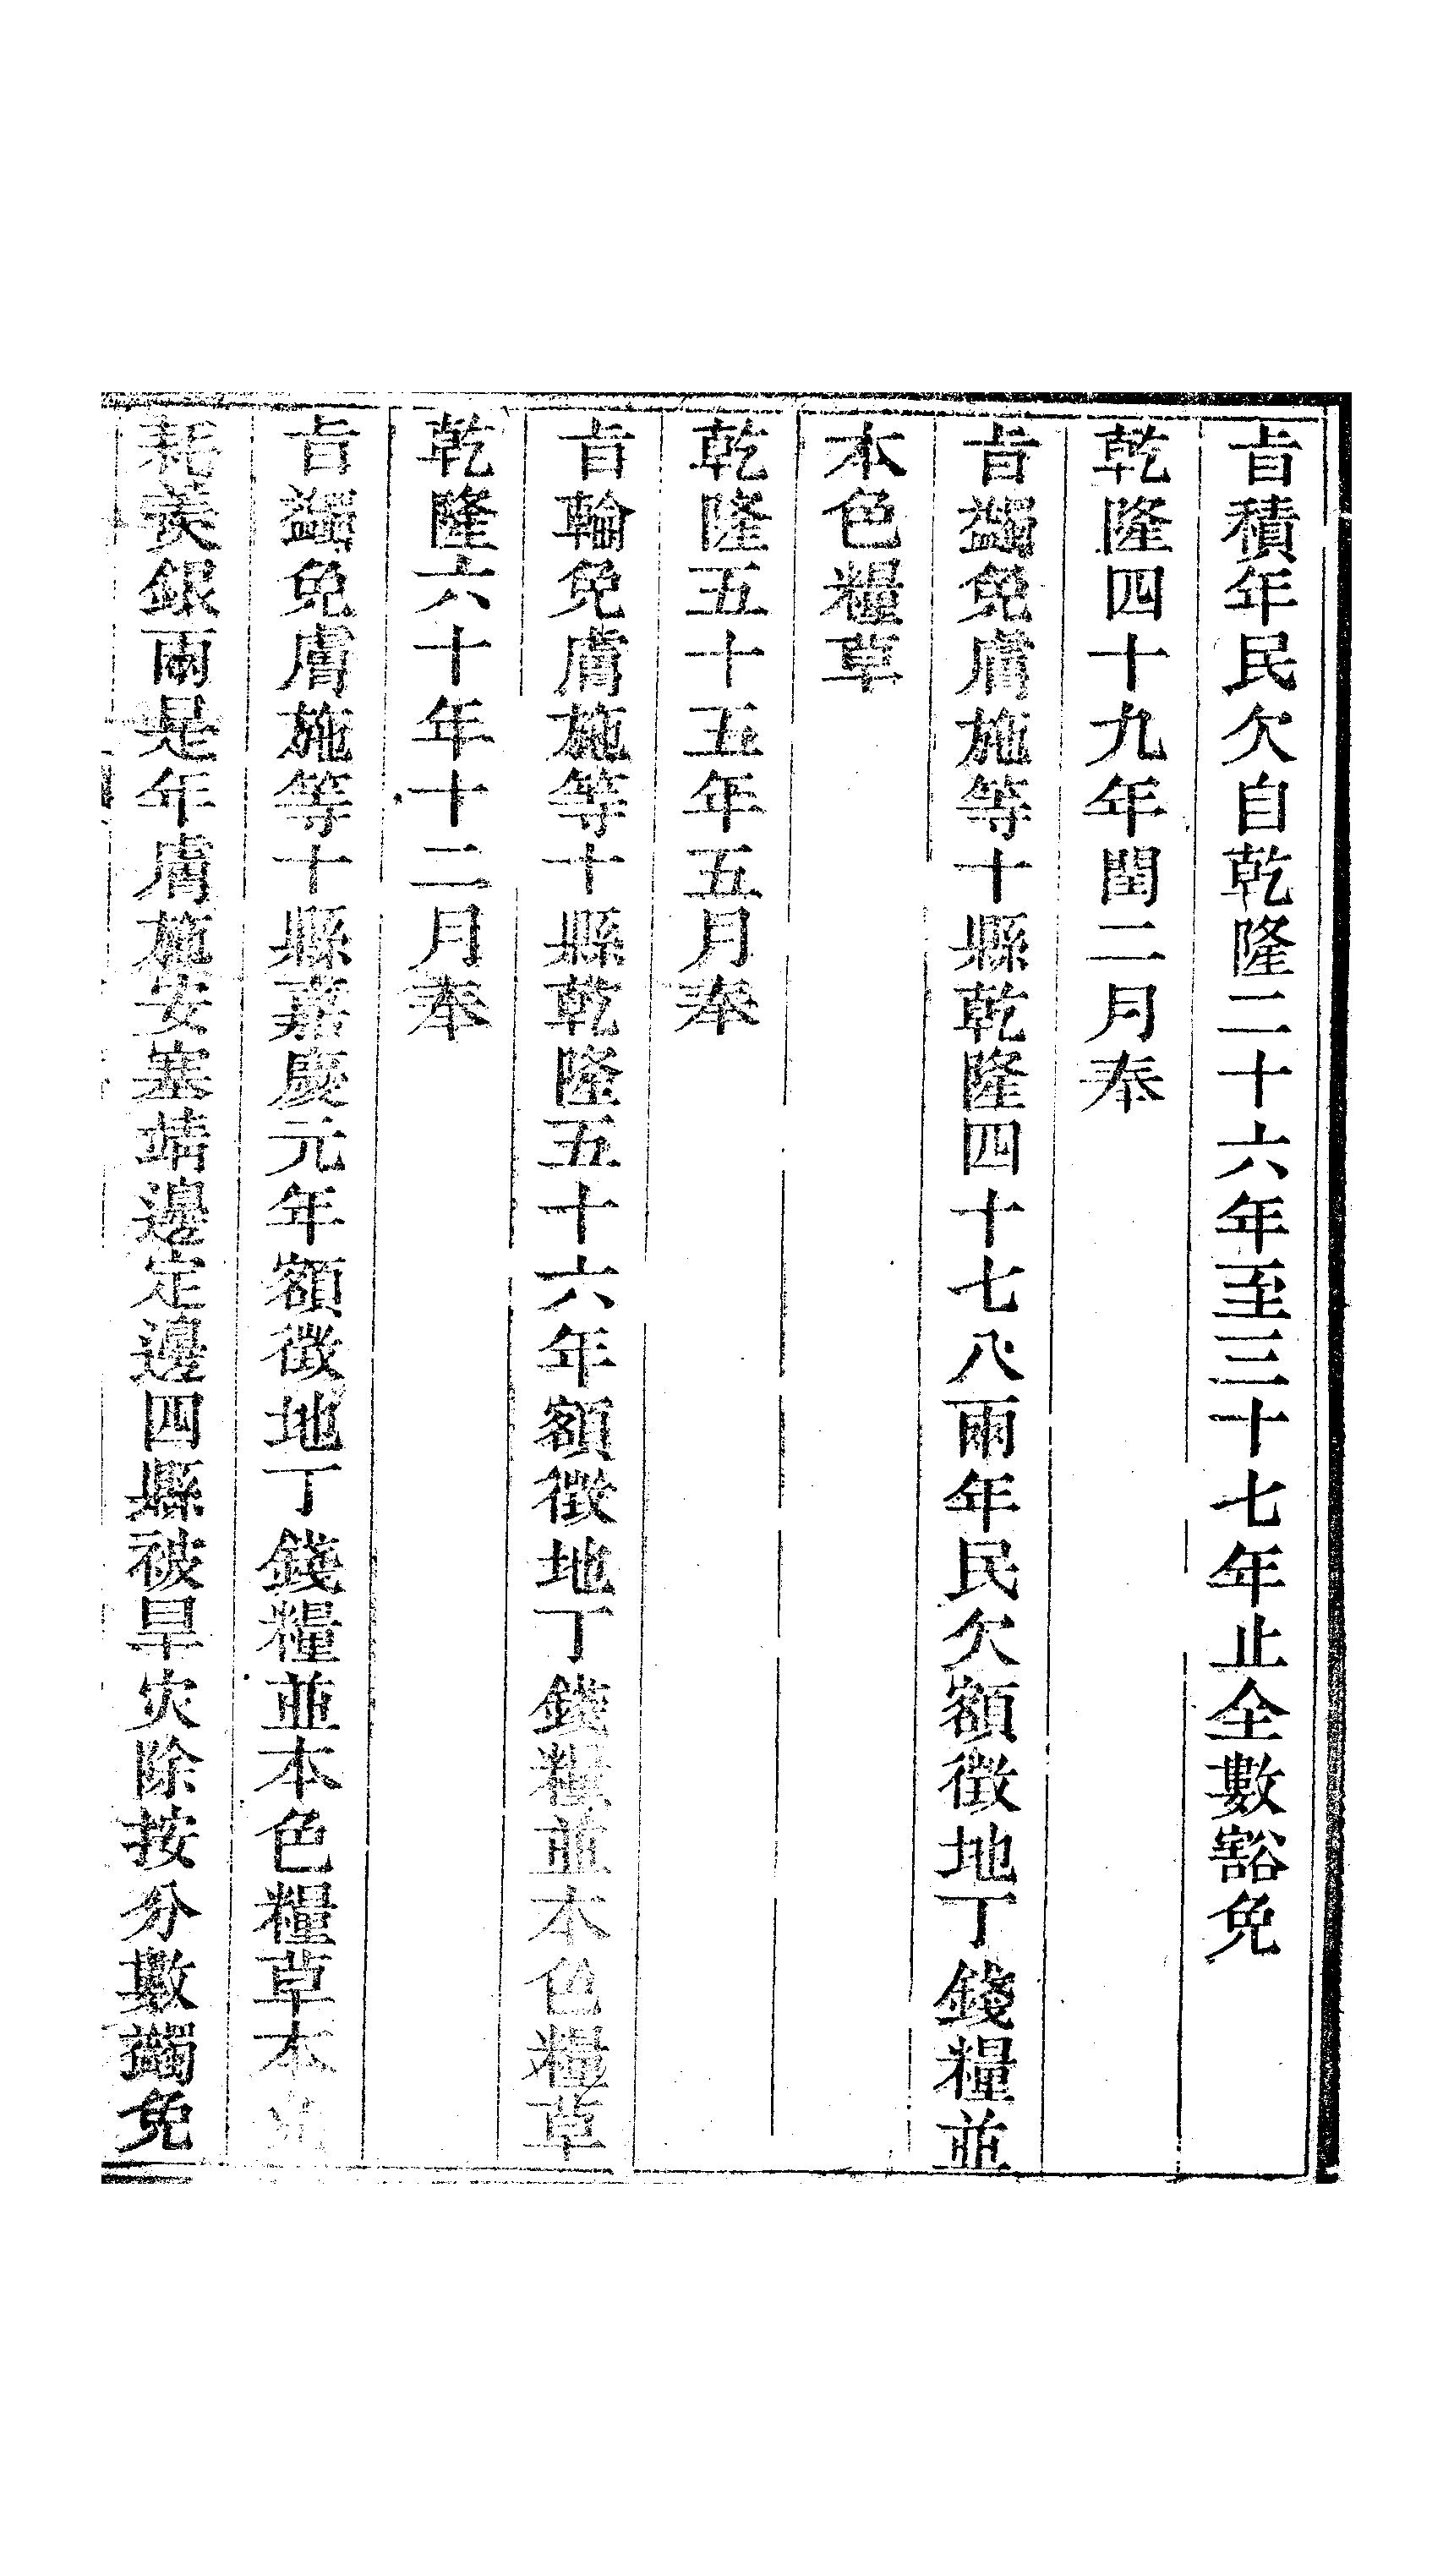 旨積年民欠自乾隆二十六年至三十七年止全數豁免
乾隆四十九年閏二月奉
旨蠲免膚施等十縣乾隆四十七八兩年民欠額徵地丁錢糧並
本色糧草
乾隆五十五年五月奉
旨輪免膚施等十縣乾隆五十六年額徵地丁錢糧並本色糧草
乾隆六十年十二月奉
旨蠲免膚施等十縣嘉慶元年額徵地丁錢糧並本色糧草本
耗羡銀兩是年膚施安塞靖邊定邊四縣被旱灾除按分數蠲免